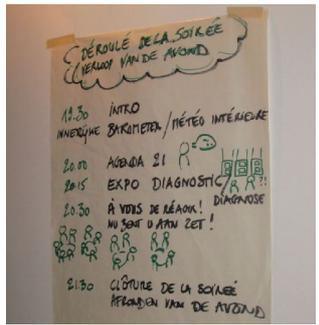 DÉROULÉ DE LA SOIRÉE
VERLOOP VAN DE AVOND
19.30 INTRO
INNERLIJKE BAROMETER / MÉTÉO INTÉRIEURE
20.00 AGENDA 21
20.15 EXPO DIAGNOSTIC / ?!
DIAGNOSE
20.30 À VOUS DE RÉAGIR!
NU BENT U AAN ZET!
21.30 CLÔTURE DE LA SOIREÉ
AFRONDEN VAN DE AVOND